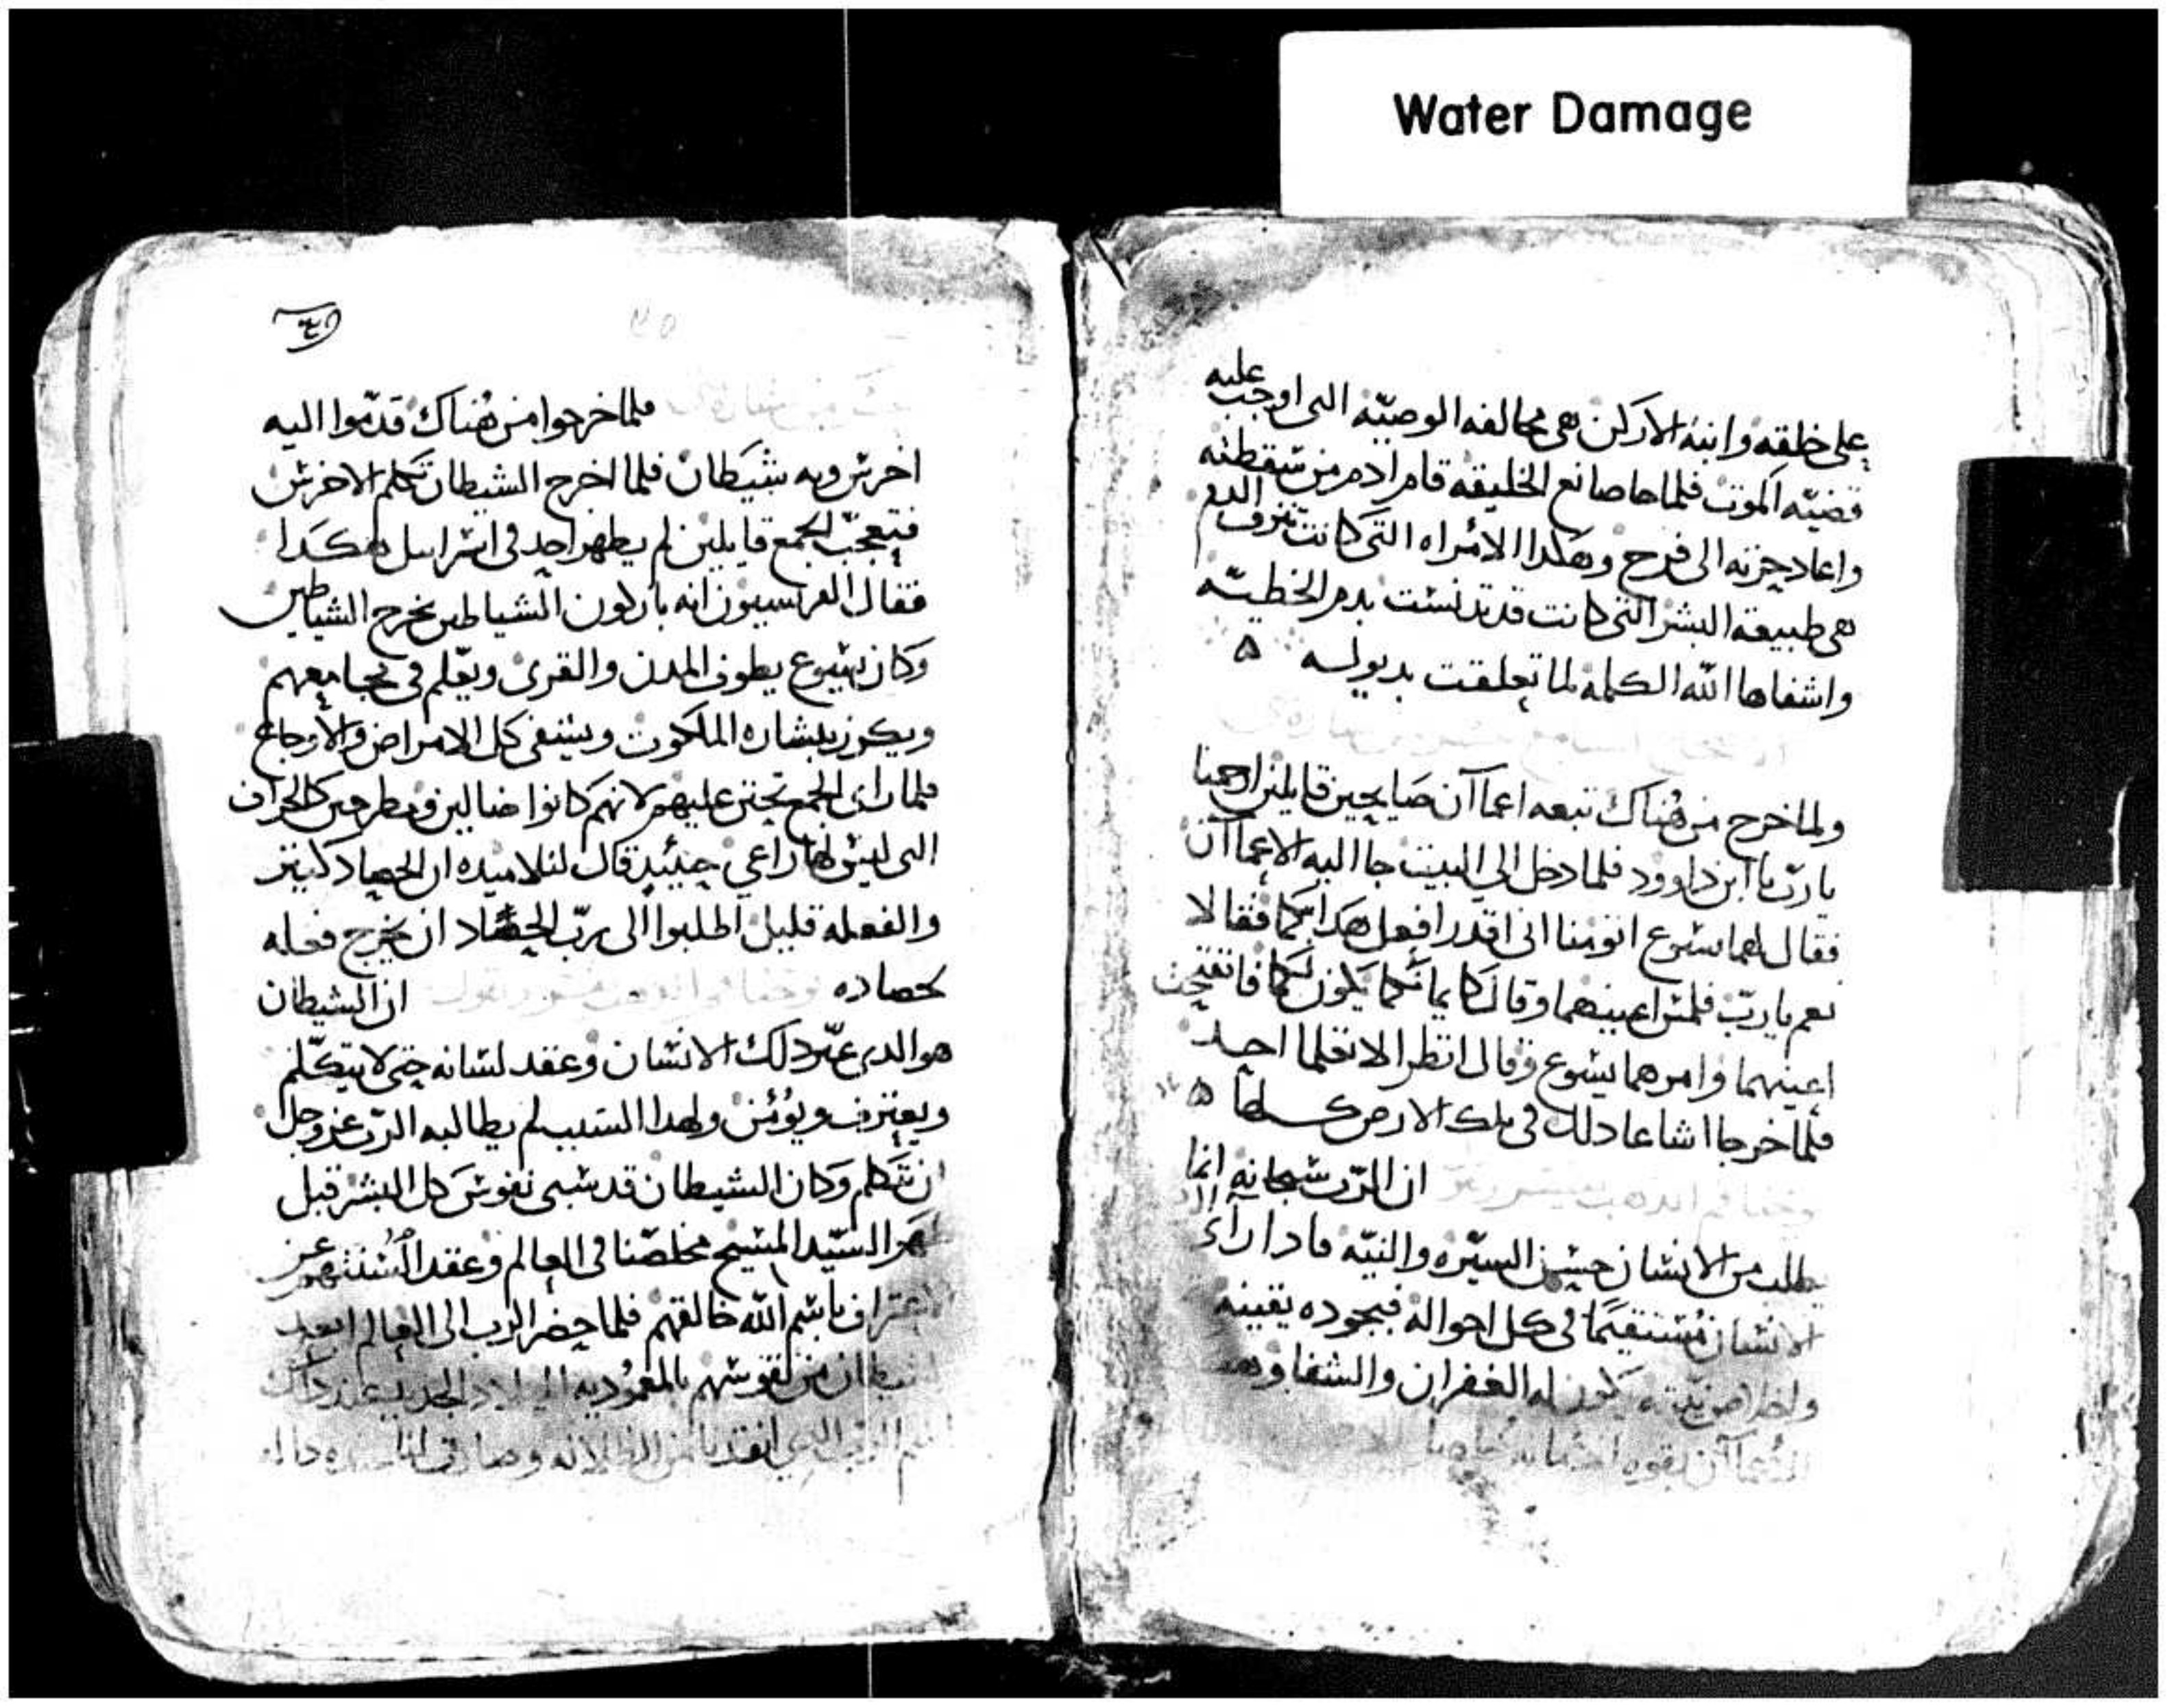 Water Damage
على خلقه وابنة الاركن هى مخالفه الوصيّه التى اوجب عليه
قضيّه الموت فلما جا صانع الخليقه قام ادم من سقطته
واعاد حزنه الى فرح وهكدا الامراه التى كانت تنزف الدم
هى طبيعة البشر التى كانت قد تدنست بدم الخطيّه
واشفاها اللّه الكلمة لما تعلقت بديوله
ولما خرج من هُناك تبعه اعماآن صايحين قايلين ارحمنا
يا ربّ يا ابن داوود فلما دخل الى البيت جا اليه الاعماآن
فقال لهما يسوع اتومنا انى اقدر افعل هدا بكما فقالا
نعم يا ربّ فلمس اعينهما وقال كايمانكما يكون لكما فانفتحت
اعينهما وامرهما يسوع وقال انظرا لا تعلما احد
فلما خرجا اشاعا دلك فى تلك الارض كلها
ان الربّ سبحانه انما
يطلب من الانسان حسن السيّره والنيّه فادا رآء
الانسان مُستقيمًا فى كل احواله فبجوده يقينه
واخلاص نيّته يكون له الغفران والشفا
فلما خرجوا من هُناك قدّموا اليه
اخرس وبه شيطان فلما اخرج الشيطان تكلم الاخرس
فتعجّب الجمع قايلين لم يظهر احد فى اسراييل هكدا
فقال الفريسيون انه باركون الشياطين يخرج الشياطين
وكان يسوع يطوف المدن والقرى ويعّلم فى مجامعهم
ويكرز ببشاره الملكوت ويشفى كل الامراض والاوجاع
فلما راى الجمع تحنن عليهم لانهم كانوا ضالين ومطرحين كالخراف
التى ليس لها راعى حينيد قال لتلاميده ان الحصاد كثير
والفعله قليل اطلبوا الى ربّ الحصاد ان يخرج فعله
لحصاده
ان الشيطان
هو الدى عبّر دلك الانسان وعقد لسانه حتى لا يتكلّم
ويعترف ويوُمن ولهدا السبب لم يطالبه الربّ عز وجل
ان يتكلم وكان الشيطان قد سبى نفوس كل البشر قبل
السيّد المسيح مخلصّنا فى العالم وعقد السنتهم عن
باسم اللّه خالقهم فلما حضر الرب الى العالم ابعد
الشيطان من نفوسهم بالمعموُديه الميلاد الجديد